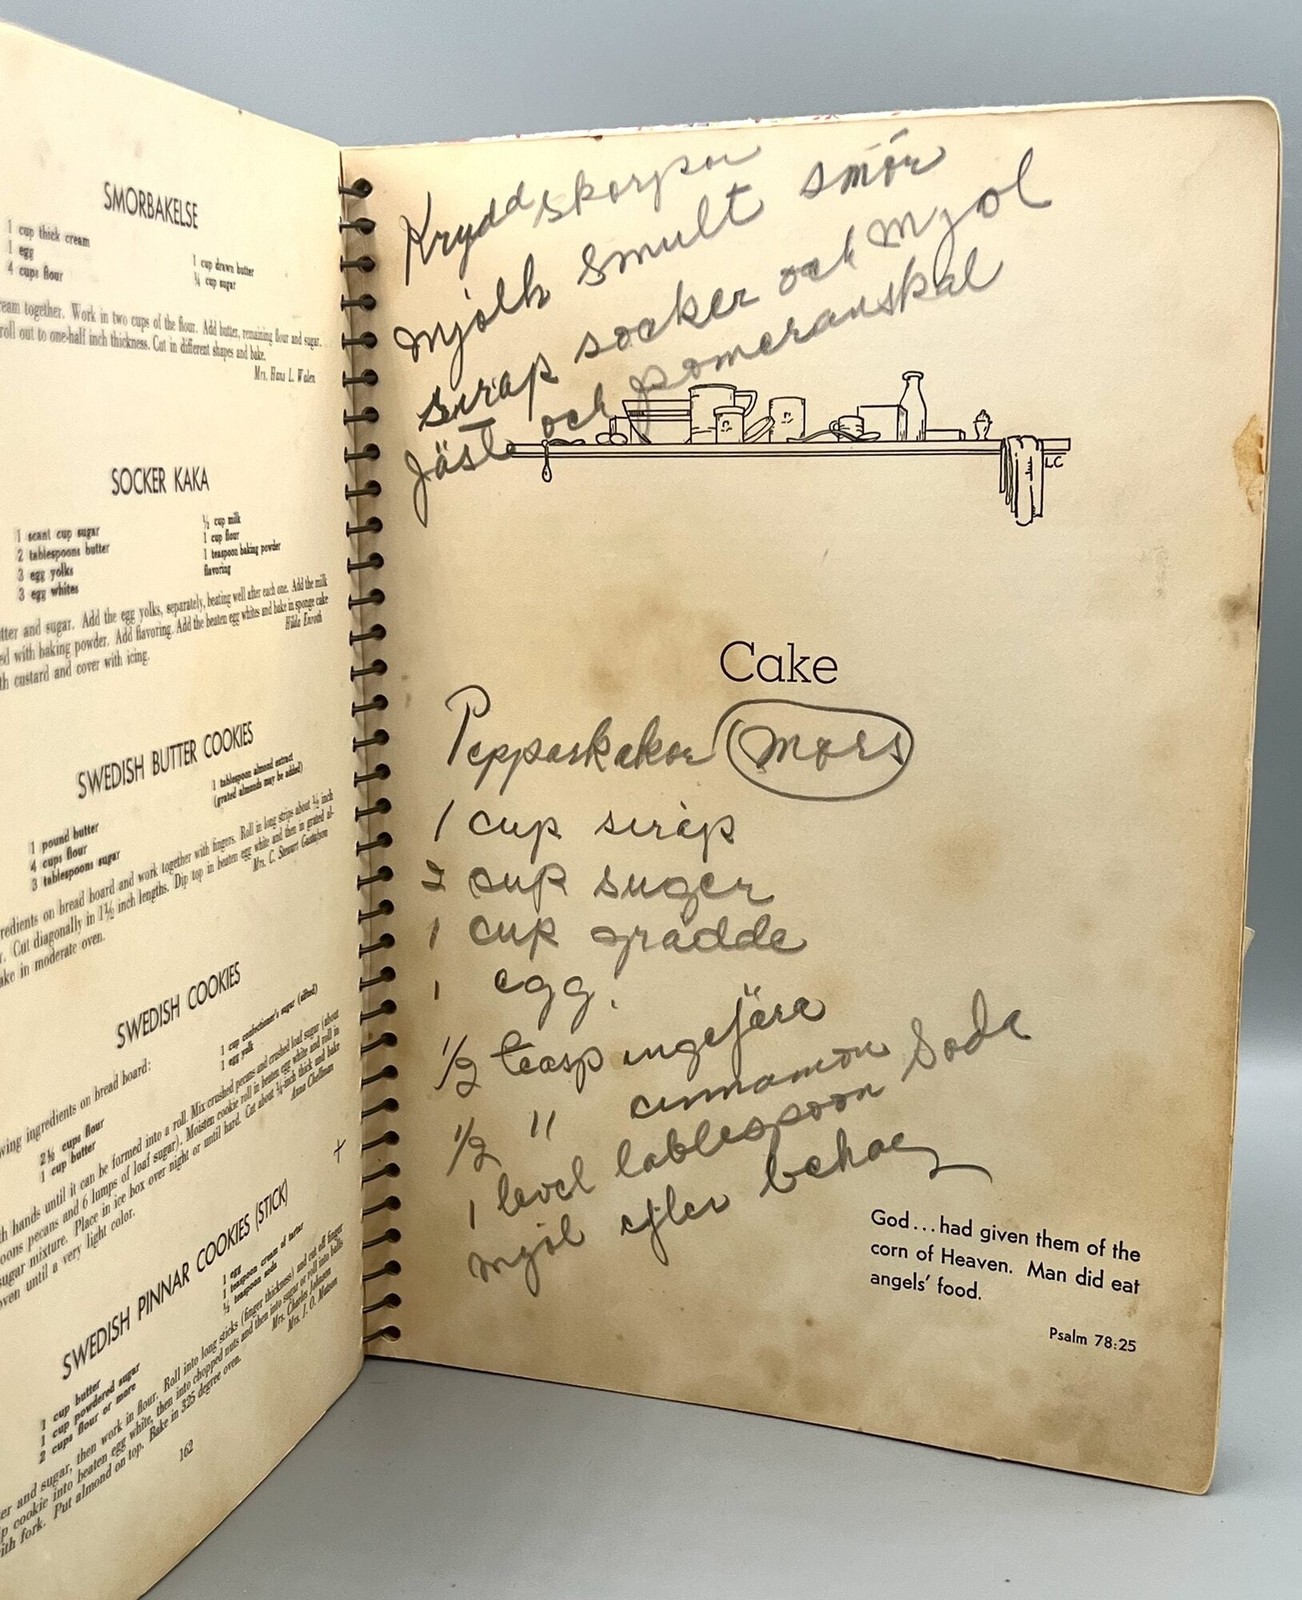 SMORBAKELSE
1 cup thick cream
1 egg
4 cups flour
1 cup drawn butter
¾ cup sugar
together. Work in two cups of the flour. Add butter, remaining flour and sugar.
roll out to one-half inch thickness. Cut in different shapes and bake.
Mrs. Hans L. Walen
SOCKER KAKA
1 scant cup sugar
2 tablespoons butter
3 egg yolks
3 egg whites
½ cup milk
1 cup flour
1 teaspoon baking powder
flavoring
and sugar. Add the egg yolks, separately, beating well after each one. Add the milk
with baking powder. Add flavoring. Add the beaten egg whites and bake in sponge cake
with custard and cover with icing.
Hilda Enroth
SWEDISH BUTTER COOKIES
1 pound butter
4 cups flour
3 tablespoons sugar
1 tablespoon almond extract
(grated almonds may be added)
ingredients on bread board and work together with fingers. Roll in long strips about ½ inch
Cut diagonally in 1½ inch lengths. Dip top in beaten egg white and then in grated al-
in moderate oven.
Mrs. C. Stewart Gustafson
SWEDISH COOKIES
ingredients on bread board:
2½ cups flour
1 cup butter
1 cup confectioner's sugar (sifted)
1 egg yolk
hands until it can be formed into a roll. Mix crushed pecans and crushed loaf sugar (about
pecans and 6 lumps of loaf sugar). Moisten cookie roll in beaten egg white and roll in
sugar mixture. Place in ice box over night or until hard. Cut about ¼-inch thick and bake
until a very light color.
Anna Chellman
SWEDISH PINNAR COOKIES (STICK)
1 cup butter
1 cup powdered sugar
2 cups flour or more
1 egg
1 teaspoon cream of tartar
½ teaspoon soda
and sugar, then work in flour. Roll into long sticks (finger thickness) and cut off finger
cookie into beaten egg white, then into chopped nuts and then into sugar or roll into balls
with fork. Put almond on top. Bake in 325 degree oven.
Mrs. Charles Johnson
Mrs. J. O.
162
Kryddskorpor
Mjölk smult smör
sirap socker och Mjöl
Jäst och pomeranskal
LC
Cake
Pepparkakor mors
1 cup sirap
2 cup suger
1 cup grädde
1 egg.
½ teasp ingefära
½ " cinnamon
1 level tablespoon Soda
Mjöl efter behag
God...had given them of the
corn of Heaven. Man did eat
angels' food.
Psalm 78:25